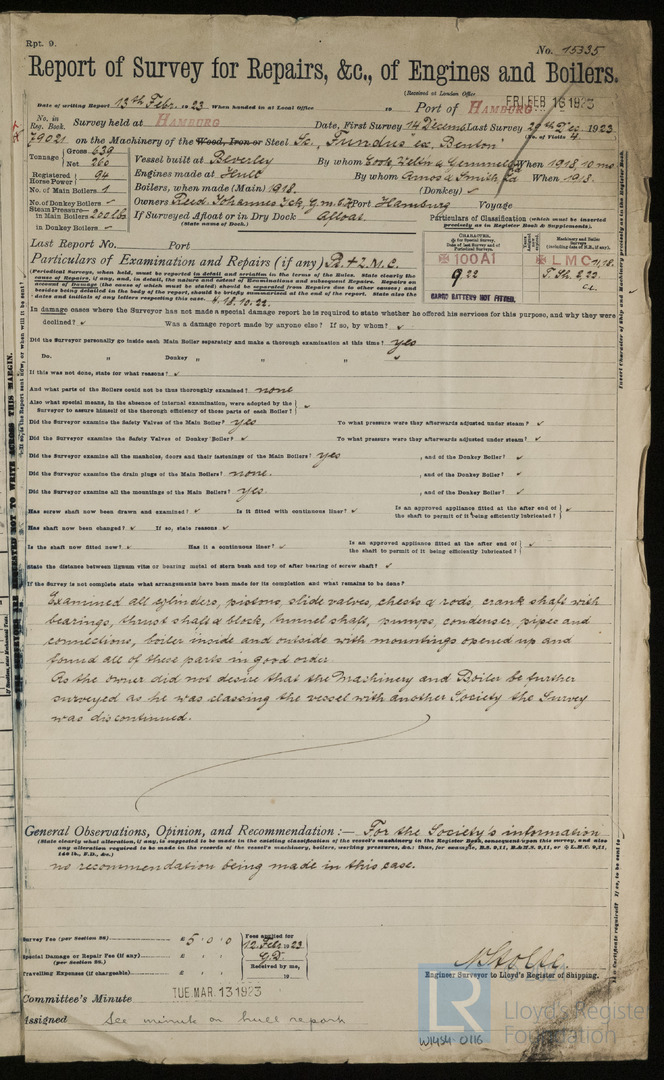 Rpt. 9.
No. 15335
Report of Survey for Repairs, &c., of Engines and Boilers.
(Received at London Office FRI. FEB 16 1923
Date of writing Report 13th Febr. 1923 When handed in at Local Office 19 Port of HAMBURG
No. in Reg. Book. Survey held at HAMBURG Date, First Survey 14 Decemb. Last Survey 1923
(No. of Visits 4
79021 on the Machinery of the Wood, Iron or Steel Sc. "Fundus ex. Benton"
Tonnage Gross 639
Net 260
Vessel built at Beverley By whom Cook, Welton & Gemmell When 1918, 10 mo
Registered Horse Power 94
Engines made at Hull By whom Amos & Smith Ld When 1918
No. of Main Boilers 1
Boilers, when made (Main) 1918. (Donkey) ✓
No. of Donkey Boilers ✓
Owners Reed. Johannes Ick, G.m.b.H. Port Hamburg Voyage
Steam Pressure in Main Boilers 200 lbs
in Donkey Boilers ✓
If Surveyed Afloat or in Dry Dock Afloat
(State name of Dock.)
Particulars of Classification (which must be inserted precisely as in Register Book & Supplements).
Last Report No. Port
Particulars of Examination and Repairs (if any) B. & L.M.C.
CHARACTER.
Machinery and Boiler Surveys
✠ 100A1
✠ LMC 11,18.
9,22
T. Sh. 9,22.
CARGO BATTERY NOT FITTED.
(Periodical Surveys, when held, must be reported in detail and seriatim in the terms of the Rules. State clearly the cause of Repairs, if any, and, in detail, the nature and extent of Examinations and subsequent Repairs. Repairs on account of Damage (the cause of which must be stated) should be separated from Repairs due to other causes; and besides being detailed in the body of the report, should be briefly summarised at the end of the report. State also the dates and initials of any letters respecting this case. 4.18.10.22.
In damage cases where the Surveyor has not made a special damage report he is required to state whether he offered his services for this purpose, and why they were
declined? ✓ Was a damage report made by anyone else? If so, by whom? ✓
Did the Surveyor personally go inside each Main Boiler separately and make a thorough examination at this time? yes
Do. „ Donkey „ „ „ „ ✓
If this was not done, state for what reasons? ✓
And what parts of the Boilers could not be thus thoroughly examined? none
Also what special means, in the absence of internal examination, were adopted by the Surveyor to assure himself of the thorough efficiency of those parts of each Boiler? ✓
Did the Surveyor examine the Safety Valves of the Main Boiler? yes To what pressure were they afterwards adjusted under steam? ✓
Did the Surveyor examine the Safety Valves of Donkey Boiler? ✓ To what pressure were they afterwards adjusted under steam? ✓
Did the Surveyor examine all the manholes, doors and their fastenings of the Main Boilers? yes , and of the Donkey Boiler? ✓
Did the Surveyor examine the drain plugs of the Main Boilers? none. , and of the Donkey Boiler? ✓
Did the Surveyor examine all the mountings of the Main Boilers? yes. , and of the Donkey Boiler? ✓
Has screw shaft now been drawn and examined? ✓ Is it fitted with continuous liner? ✓ Is an approved appliance fitted at the after end of the shaft to permit of it being efficiently lubricated? ✓
Has shaft now been changed? ✓ If so, state reasons ✓
Is the shaft now fitted new? ✓ Has it a continuous liner? ✓ Is an approved appliance fitted at the after end of the shaft to permit of it being efficiently lubricated? ✓
State the distance between lignum vitæ or bearing metal of stern bush and top of after bearing of screw shaft? ✓
If the Survey is not complete state what arrangements have been made for its completion and what remains to be done?
Examined all cylinders, pistons, slide valves, chests & rods, crank shaft with
bearings, thrust shaft & block, tunnel shaft, pumps, condenser, pipes and
connections, boiler inside and outside with mountings opened up and
found all of these parts in good order.
As the owner did not desire that the Machinery and Boiler be further
surveyed as he was classing the vessel with another Society the Survey
was discontinued.
General Observations, Opinion, and Recommendation :— For the Society's information
(State clearly what alteration, if any, is suggested to be made in the existing classification of the vessel's machinery in the Register Book, consequent upon this survey, and also any alteration required to be made in the records of the vessel's machinery, boilers, working pressures, &c.: thus, for example, B.S. 9,11, B.&M.S. 9,11, or ✠ L.M.C. 9,11, 140 lb., F.D., &c.)
no recommendation being made in this case.
Survey Fee (per Section 29) £ 5 : 0 : 0
Fees applied for
12 Febr. 1923
Special Damage or Repair Fee (if any) £ : :
(per Section 29.)
Received by me,
Travelling Expenses (if chargeable) £ : :
19
Engineer Surveyor to Lloyd's Register of Shipping.
Committee's Minute TUE. MAR. 13 1923
Assigned See minute on hull report
LR
Lloyd's Register
Foundation
W1454-0116